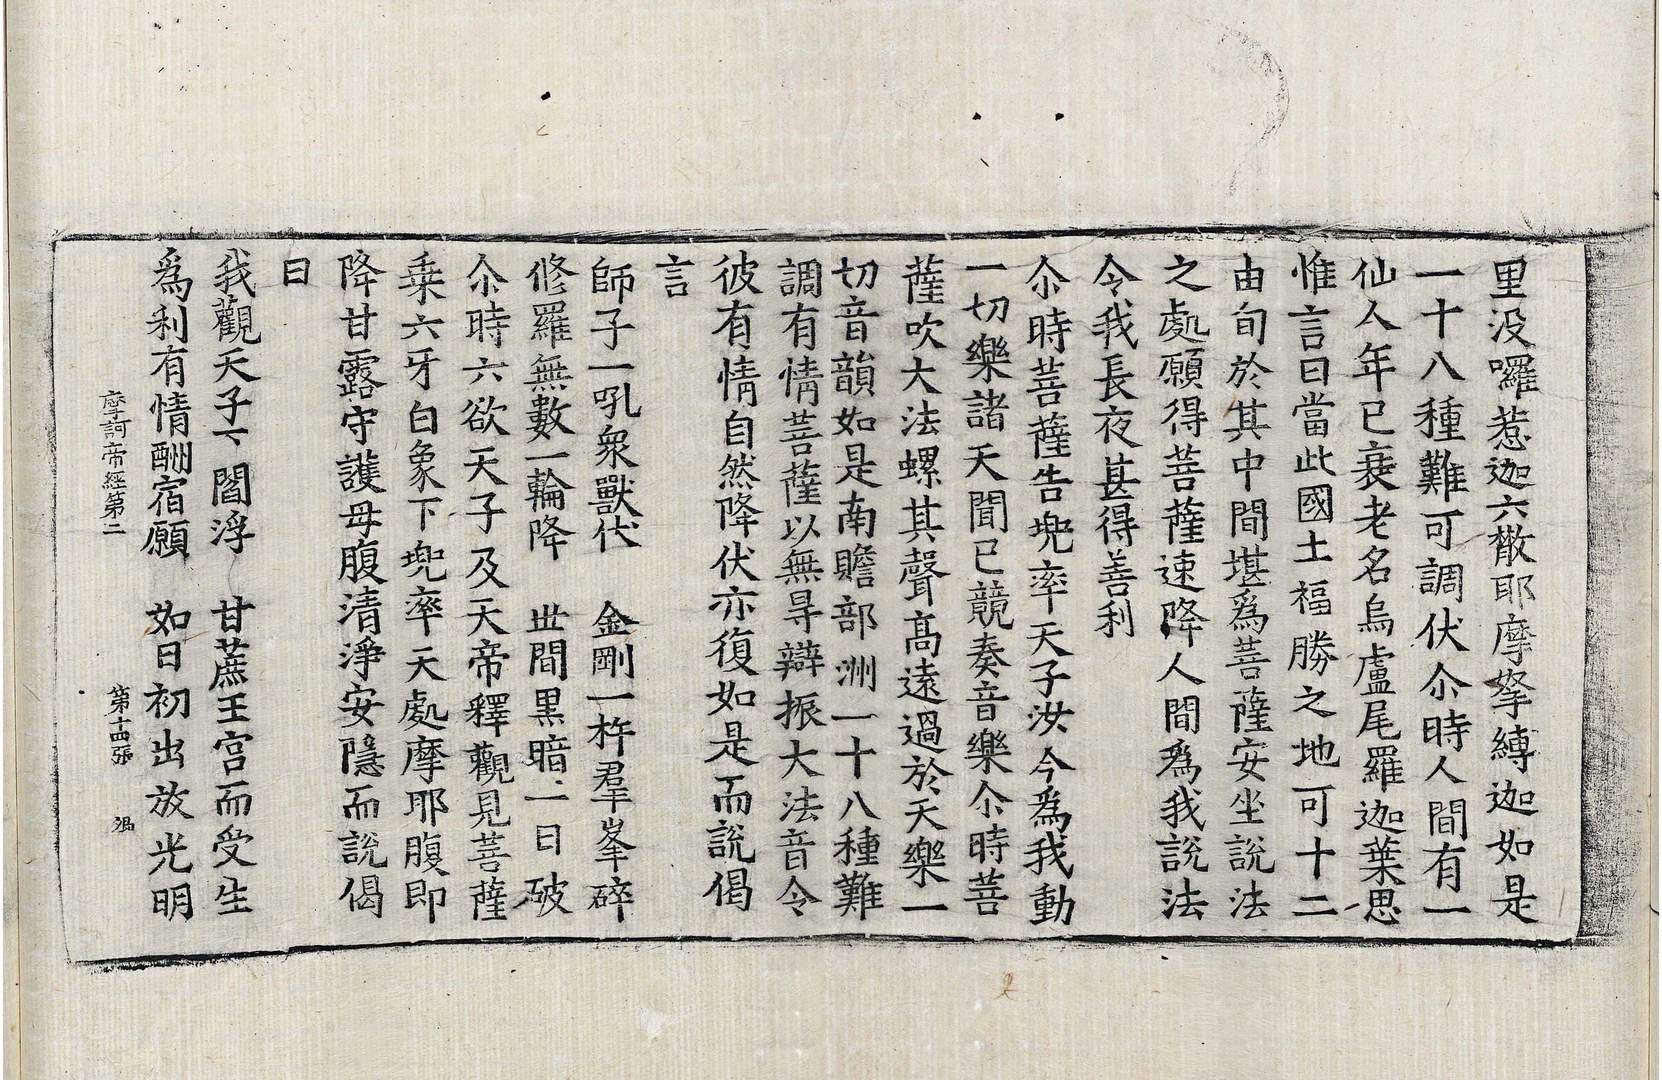 里没囉惹迦六㪚耶摩拏縛迦如是
一十八種難可調伏尒時人間有一
仙人年已衰老名烏盧尾羅迦葉思
惟言曰當此國土福勝之地可十二
由旬於其中間堪爲菩薩安坐説法
之處願得菩薩速降人間爲我説法
令我長夜甚得善利
尒時菩薩告兜率天子汝今爲我動
一切樂諸天聞已競奏音樂尒時菩
薩吹大法螺其聲高遠過於天樂一
切音韻如是南贍部洲一十八種難
調有情菩薩以無㝵辯振大法音令
彼有情自然降伏亦復如是而説偈
言
師子一吼衆獸伏　金剛一杵羣峯碎
修羅無數一輪降　世間黑暗一日破
尒時六欲天子及天帝釋觀見菩薩
乗六牙白象下兜率天處摩耶腹即
降甘露守護母腹清淨安隱而説偈
曰
我觀天子下閻浮　甘蔗王宫而受生
爲利有情酬宿願　如日初出放光明
摩訶帝經第二　第十四張